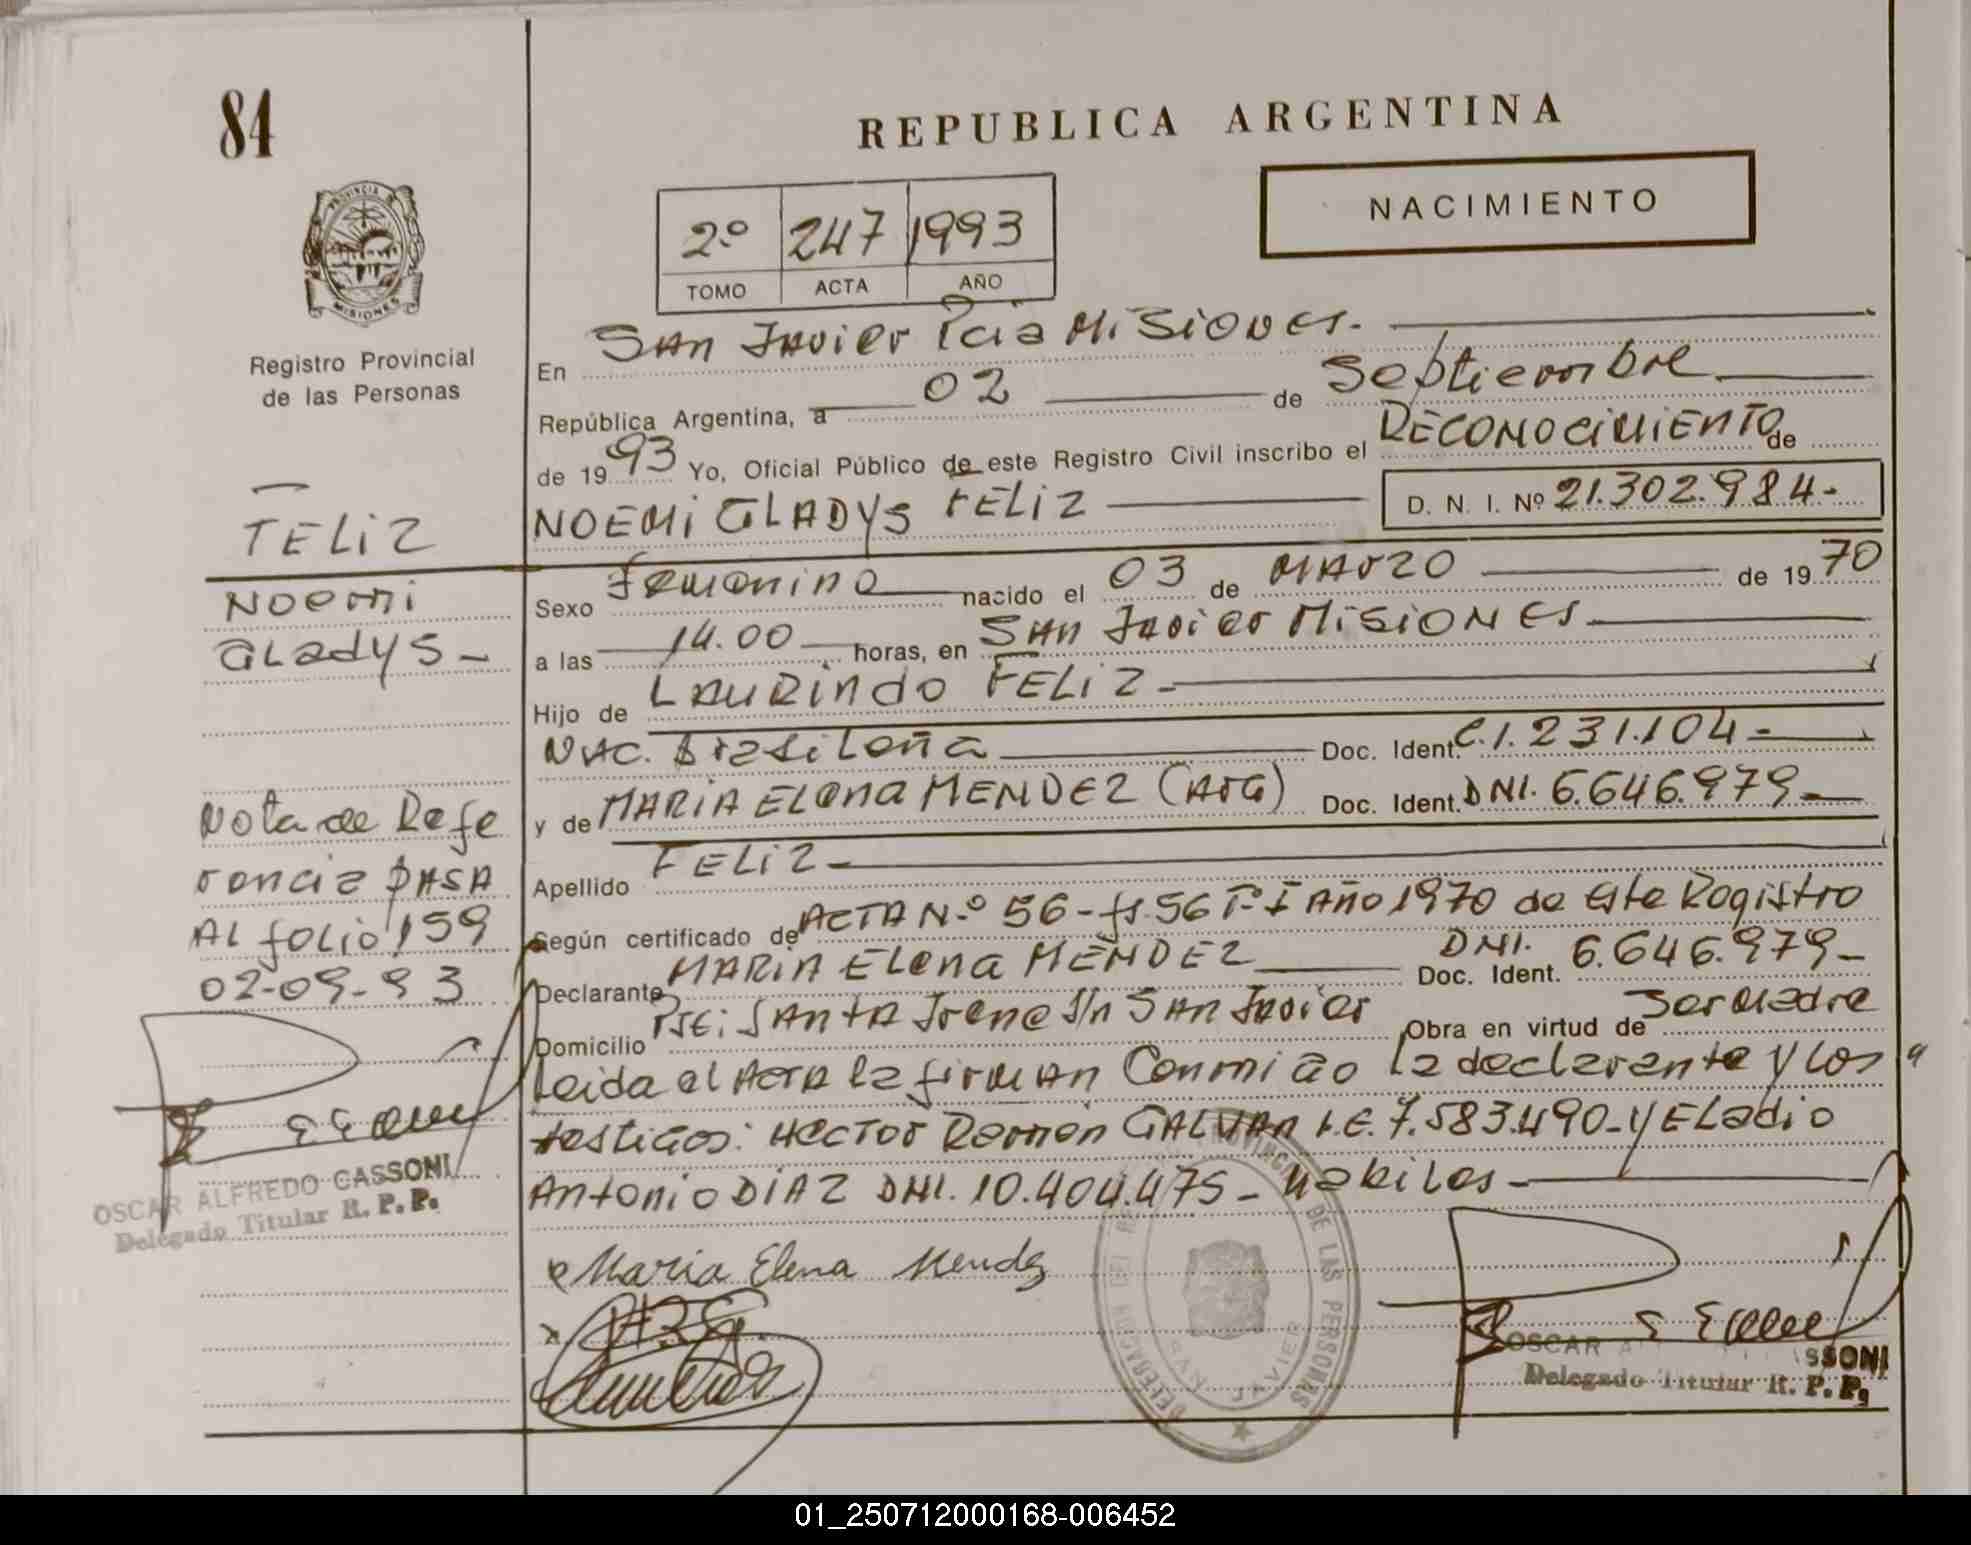 84
REPUBLICA ARGENTINA
NACIMIENTO
2º 247 1993
TOMO ACTA AÑO
PROVINCIA DE
MISIONES
Registro Provincial
de las Personas
FELIZ
Noemi
Gladys -
Nota de Refe
rencia PASA
AL folio 159
02-09-93
OSCAR ALFREDO CASSONI
Delegado Titular R. P. P.
En SAN JAvier Pcia MiSiones. -
República Argentina, a 02 de Septiembre
de 1993 Yo, Oficial Público de este Registro Civil inscribo el RECONOCIMIENTO de
NOEMI GLADYS FELIZ D. N. I. Nº 21.302.984-
Sexo Femenino nacido el 03 de MArzo de 1970
a las 14.00 horas, en SAN JAvier MISIONES
Hijo de LAURINDO FELIZ-
NAC. Brasileña Doc. Ident. C.I. 231.104-
y de MARIA ELENA MENDEZ (ArG) Doc. Ident. DNI. 6.646.979-
Apellido FELIZ-
Según certificado de ACTA N.º 56-fs.56 Tº I AÑO 1970 de este Registro
Declarante MARIA ELENA MENDEZ Doc. Ident. DNI. 6.646.979-
Domicilio Pje: SANTA Irene S/n SAN JAvier Obra en virtud de Ser Madre
Leida el ActA la firmAn Conmigo la declarante y Los
testigos: Hector Ramón GALVAN L.E. 7.583.490- y ELadio
Antonio DIAZ DNI. 10.404.475- Habiles-
Maria Elena Mendez
DELEGACION DEL REGISTRO PROVINCIAL DE LAS PERSONAS
SAN JAVIER
OSCAR A SSONI
Delegado Titular R. P. P.
01_250712000168-006452